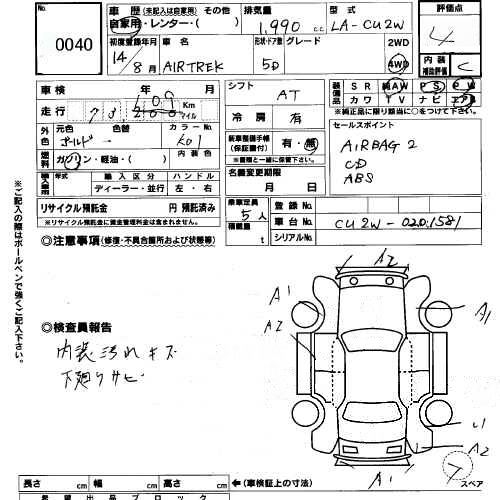 No.
0040
車歴 (未記入は自家用) その他
自家用・レンター・( )
排気量
1,990 cc
型式
LA-CU2W
評価点
4
内装
補助評価
C
初度登録年月
14/8月
車名
AIRTREK
形状・ドア数
5D
グレード
2WD
4WD
車検 年 月
走行
Km
マイル
シフト
AT
冷房
有
装備品
SR 純AW PS PW
カワ TV ナビ エアB
※純正品に限り頭当に○をつけて下さい。
外色
元色
ゴールド
色替
カラーNo.
K01
内装色
燃料
ガソリン・軽油・( )
輸入車用
年式
輸入区分
ディーラー・並行
ハンドル
左・右
新車整備手帳
(保証書付)
有・無
※書類と一緒に保管下さい。
名義変更期限
月 日
セールスポイント
AIRBAG 2
CD
ABS
リサイクル預託金 円 預託済み
※リサイクル預託金に資金管理料金は含まれません。
乗車定員
5人
積載量
t
登録No.
車台No.
CU2W-0201581
シリアルNo.
※ご記入の際はボールペンで強くご記入下さい。
◎注意事項(修復・不具合箇所および状態等)
◎検査員報告
内装汚れキズ
下廻りサビ
A2
A1
A2
A1
A2
A1
スペア
長さ cm 幅 cm 高さ cm ←(車検証上の寸法)